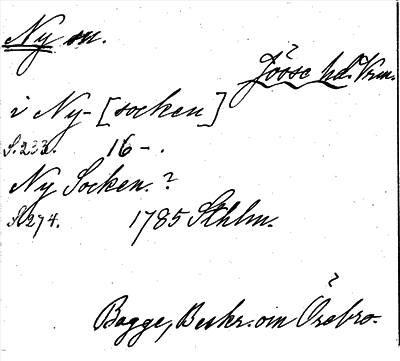 Ny sn.
Jösse hd. Vrm.
i Ny-[socken]
S. 233. 16-.
Ny Socken. ?
S. 274. 1785 Sthlm.
Bagge, Beskr. om Örebro.